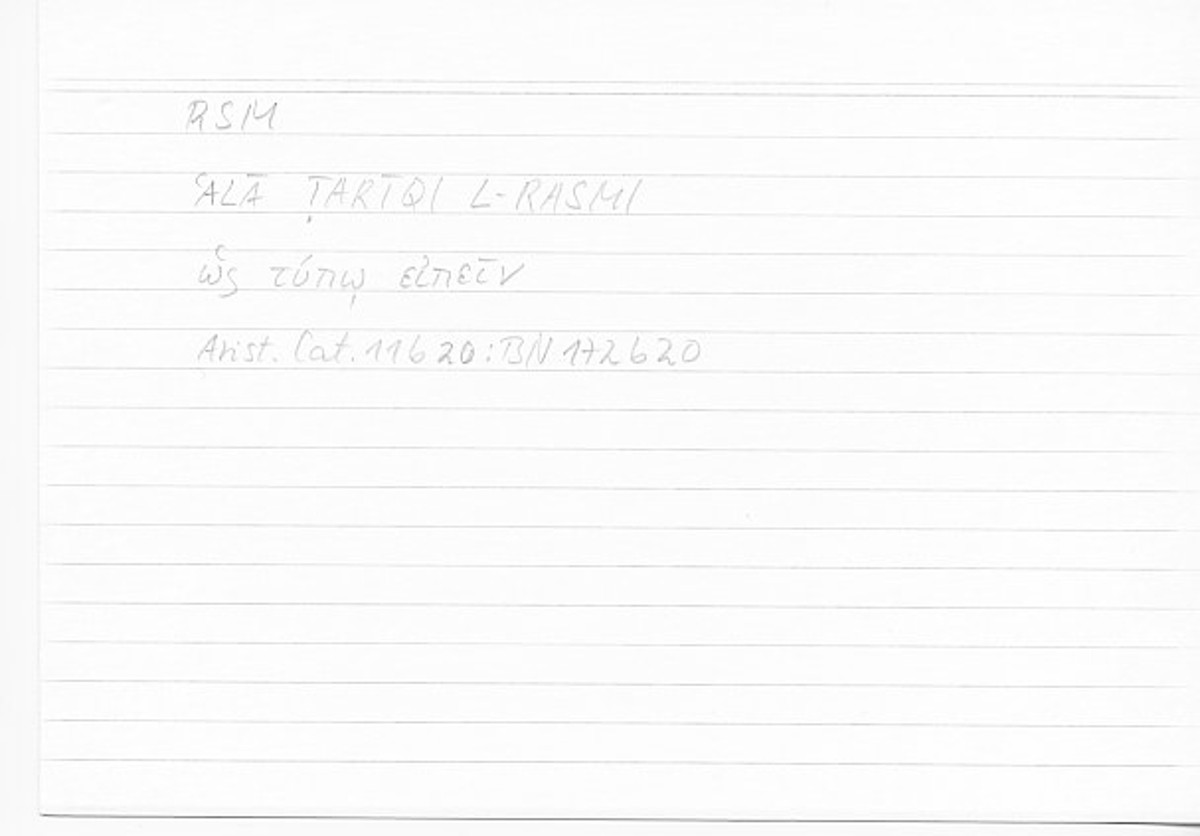 RSM
ʿALĀ ṬARĪQI L-RASMI
ὡς τύπῳ εἰπεῖν
Arist. Cat. 11b20: BN 172b20